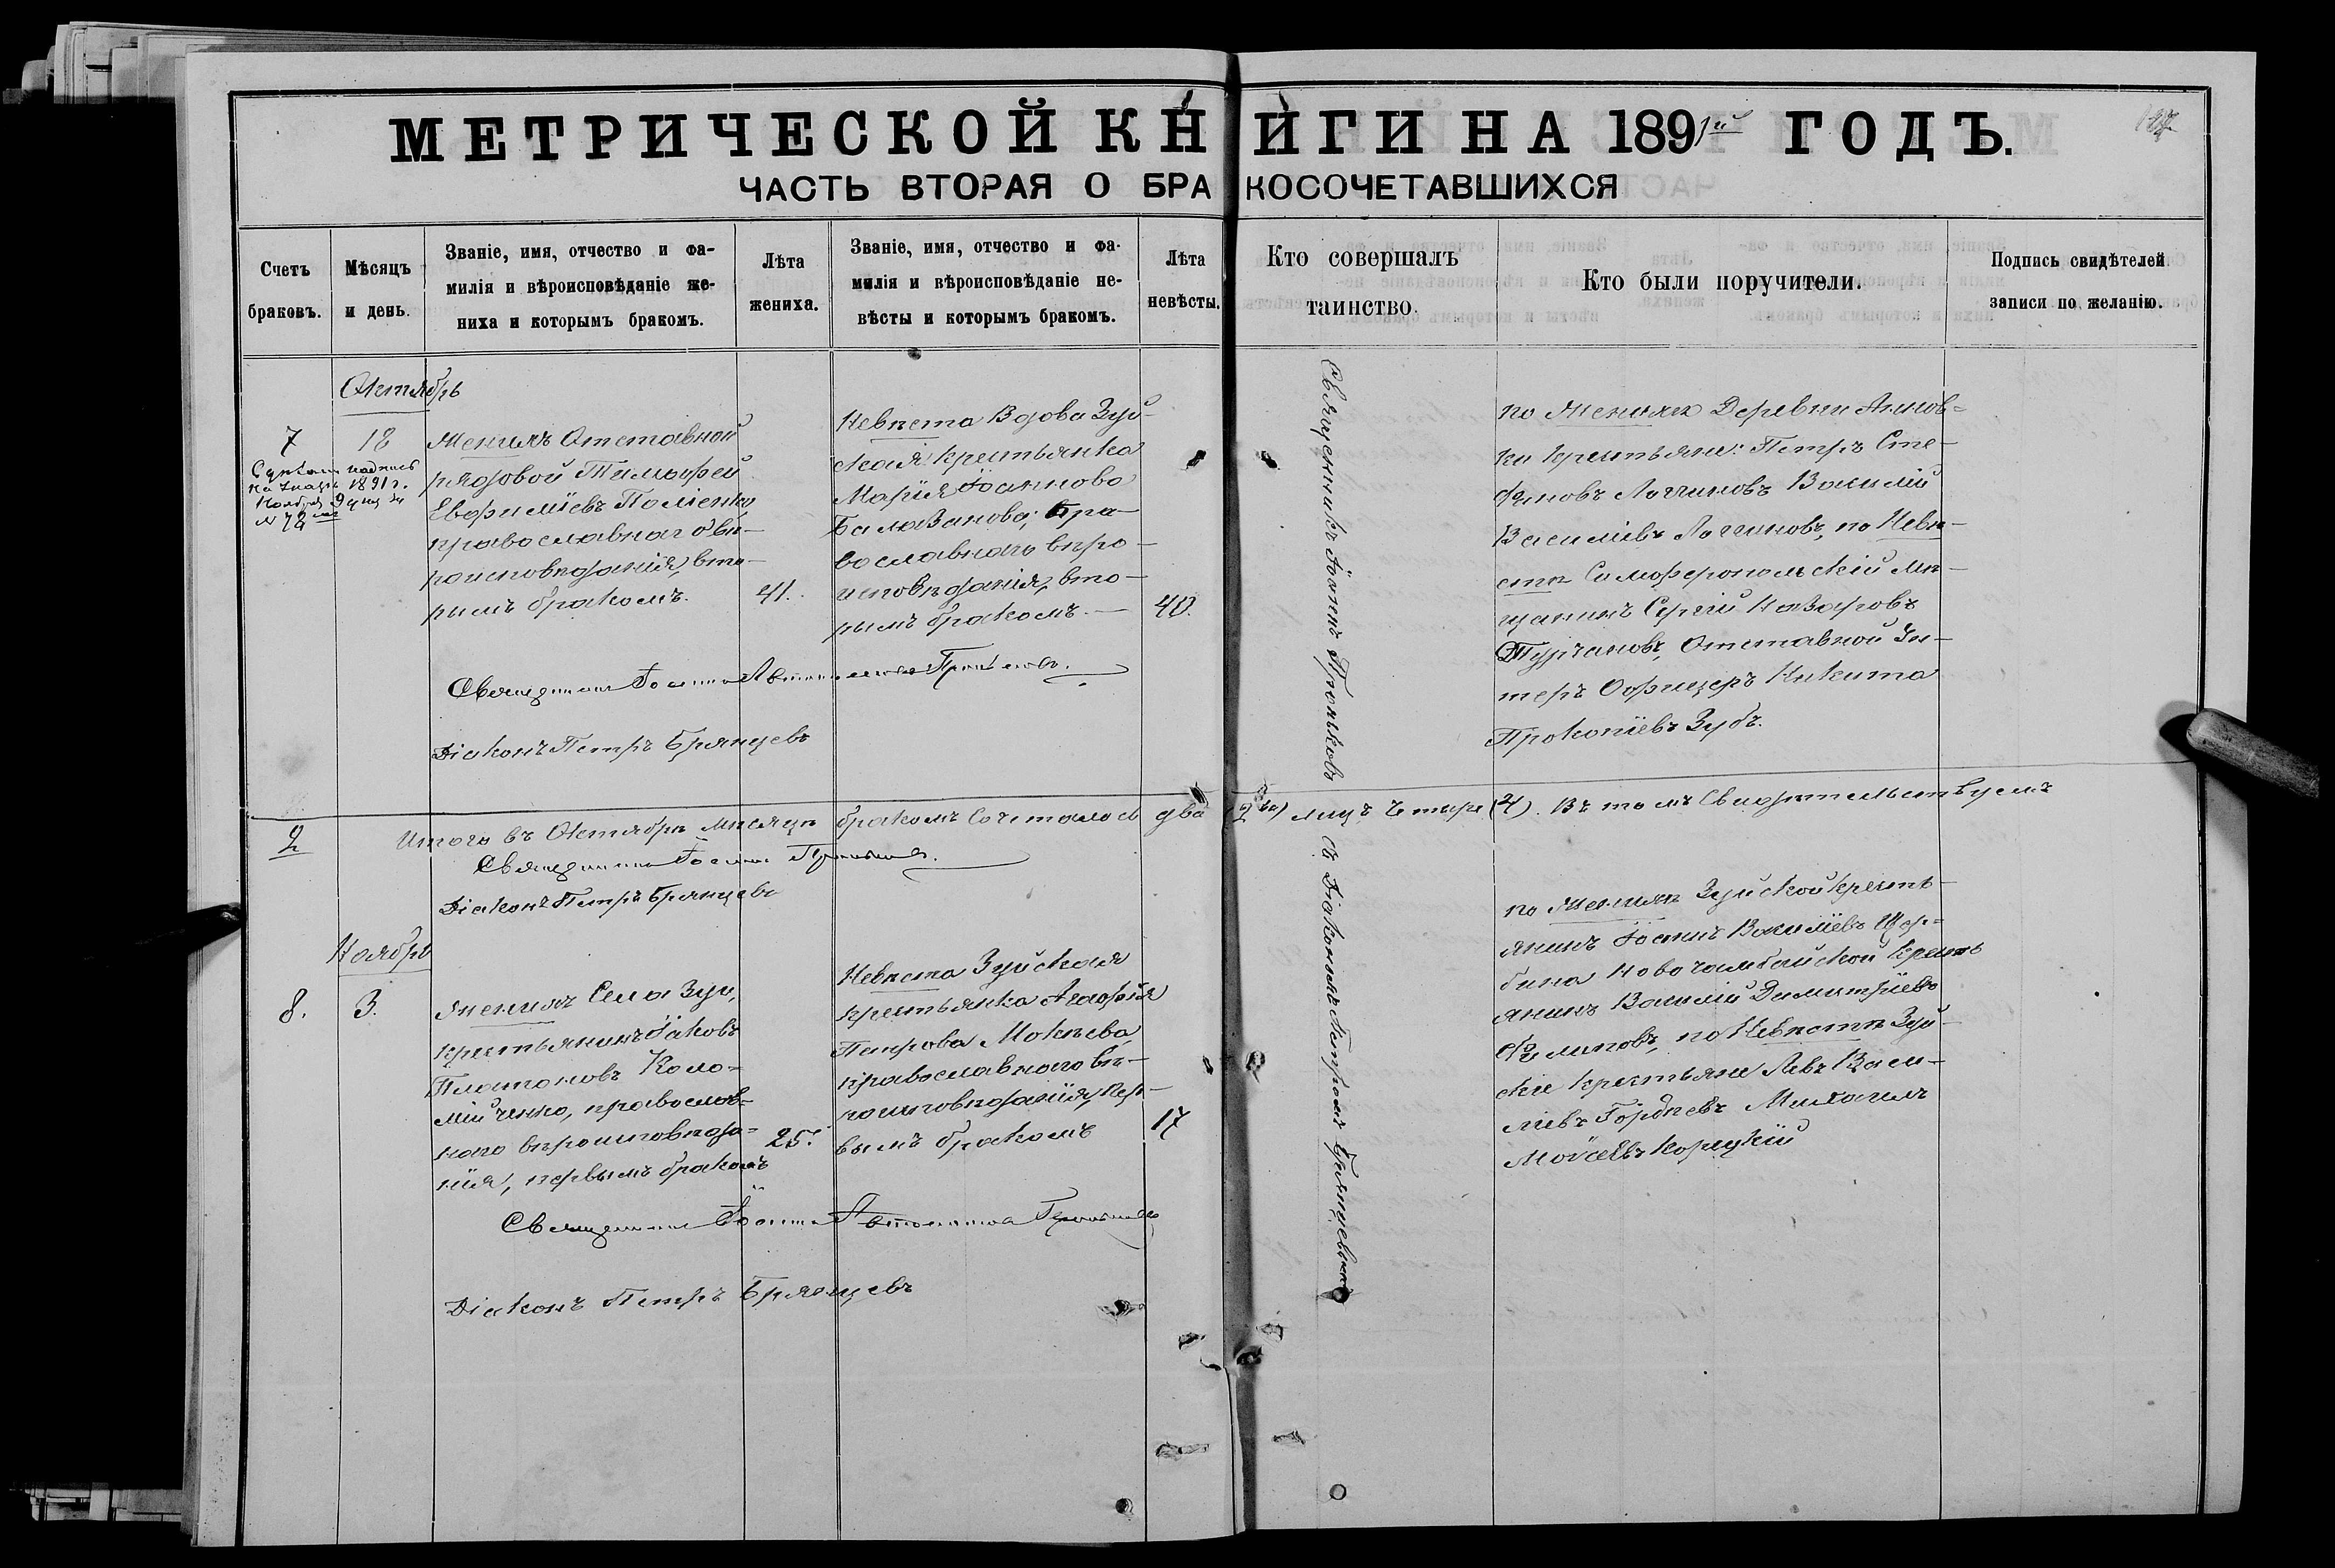 МЕТРИЧЕСКОЙ КНИГИ НА 1891й ГОДЪ.
ЧАСТЬ ВТОРАЯ О БРАКОСОЧЕТАВШИХСЯ
Счетъ
браковъ.
Мѣсяцъ
и день.
Званіе, имя, отчество и фа-
милія и вѣроисповѣданіе же-
ниха и которымъ бракомъ.
Лѣта
жениха.
Званіе, имя, отчество и фа-
милія и вѣроисповѣданіе не-
вѣсты и которымъ бракомъ.
Лѣта
невѣсты.
Кто совершалъ
таинство.
Кто были поручители.
Подпись свидѣтелей
записи по желанію.
Октябрь
7
18
надпись
1891 г.
Женихъ Отставной
рядовой Тимофей
Евфиміевъ
православнаго вѣ-
роисповѣданія, вто-
рымъ бракомъ.
41.
Невѣста Вдова Зуй-
ская крестьянка
Марія Іоаннова
Балабанова, Пра-
вославнаго вѣро-
исповѣданія, вто-
рымъ бракомъ. —
40.
Священникъ Іоаннъ Прониковъ съ Діакономъ Петромъ Брянцевымъ
по Женихѣ Деревни Аннов-
ки крестьяне: Петръ Сте-
фановъ Логгиновъ Василій
Василіевъ Логгиновъ, по Невѣ-
стѣ Симферопольскій Мѣ-
щанинъ Сергій Назаровъ
Турчановъ, Отставной Ун-
теръ Офицеръ Никита
Прокопіевъ Зубъ.
Священникъ Іоаннъ
Діаконъ Петръ Брянцевъ
2
Итого въ Октябрѣ мѣсяцѣ бракомъ сочеталось два (2ва) лицъ четыре (4). Въ томъ Свидѣтельствуемъ
Священникъ Іоаннъ
Діаконъ Петръ Брянцевъ
Ноябрь
8.
3.
Женихъ Села Зуи,
крестьянинъ Іаковъ
Платоновъ Коло-
мійченко, православ-
наго вѣроисповѣда-
нія, первымъ бракомъ
25.
Невѣста Зуйская
крестьянка Агафія
Петрова Мокѣева,
православнаго вѣ-
роисповѣданія, пер-
вымъ бракомъ
17
по Женихѣ Зуйской кресть-
янинъ Іоаннъ Василіевъ Щер-
бина Новочамбайской кресть
янинъ Василій Димитріевъ
Филиповъ, по Невѣстѣ Зуй-
скіе крестьяне Левъ Васи-
ліевъ Гордѣевъ Михаилъ
Моисеевъ Корецкій
Священникъ Іоаннъ
Діаконъ Петръ Брянцевъ